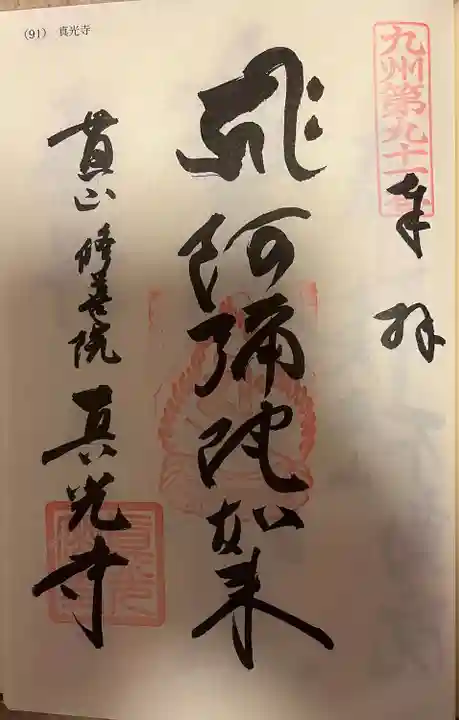 (91) 真光寺
九州第九十一番
奉拝
ह्रीः 阿彌陀如来
貫山 修善院 真光寺